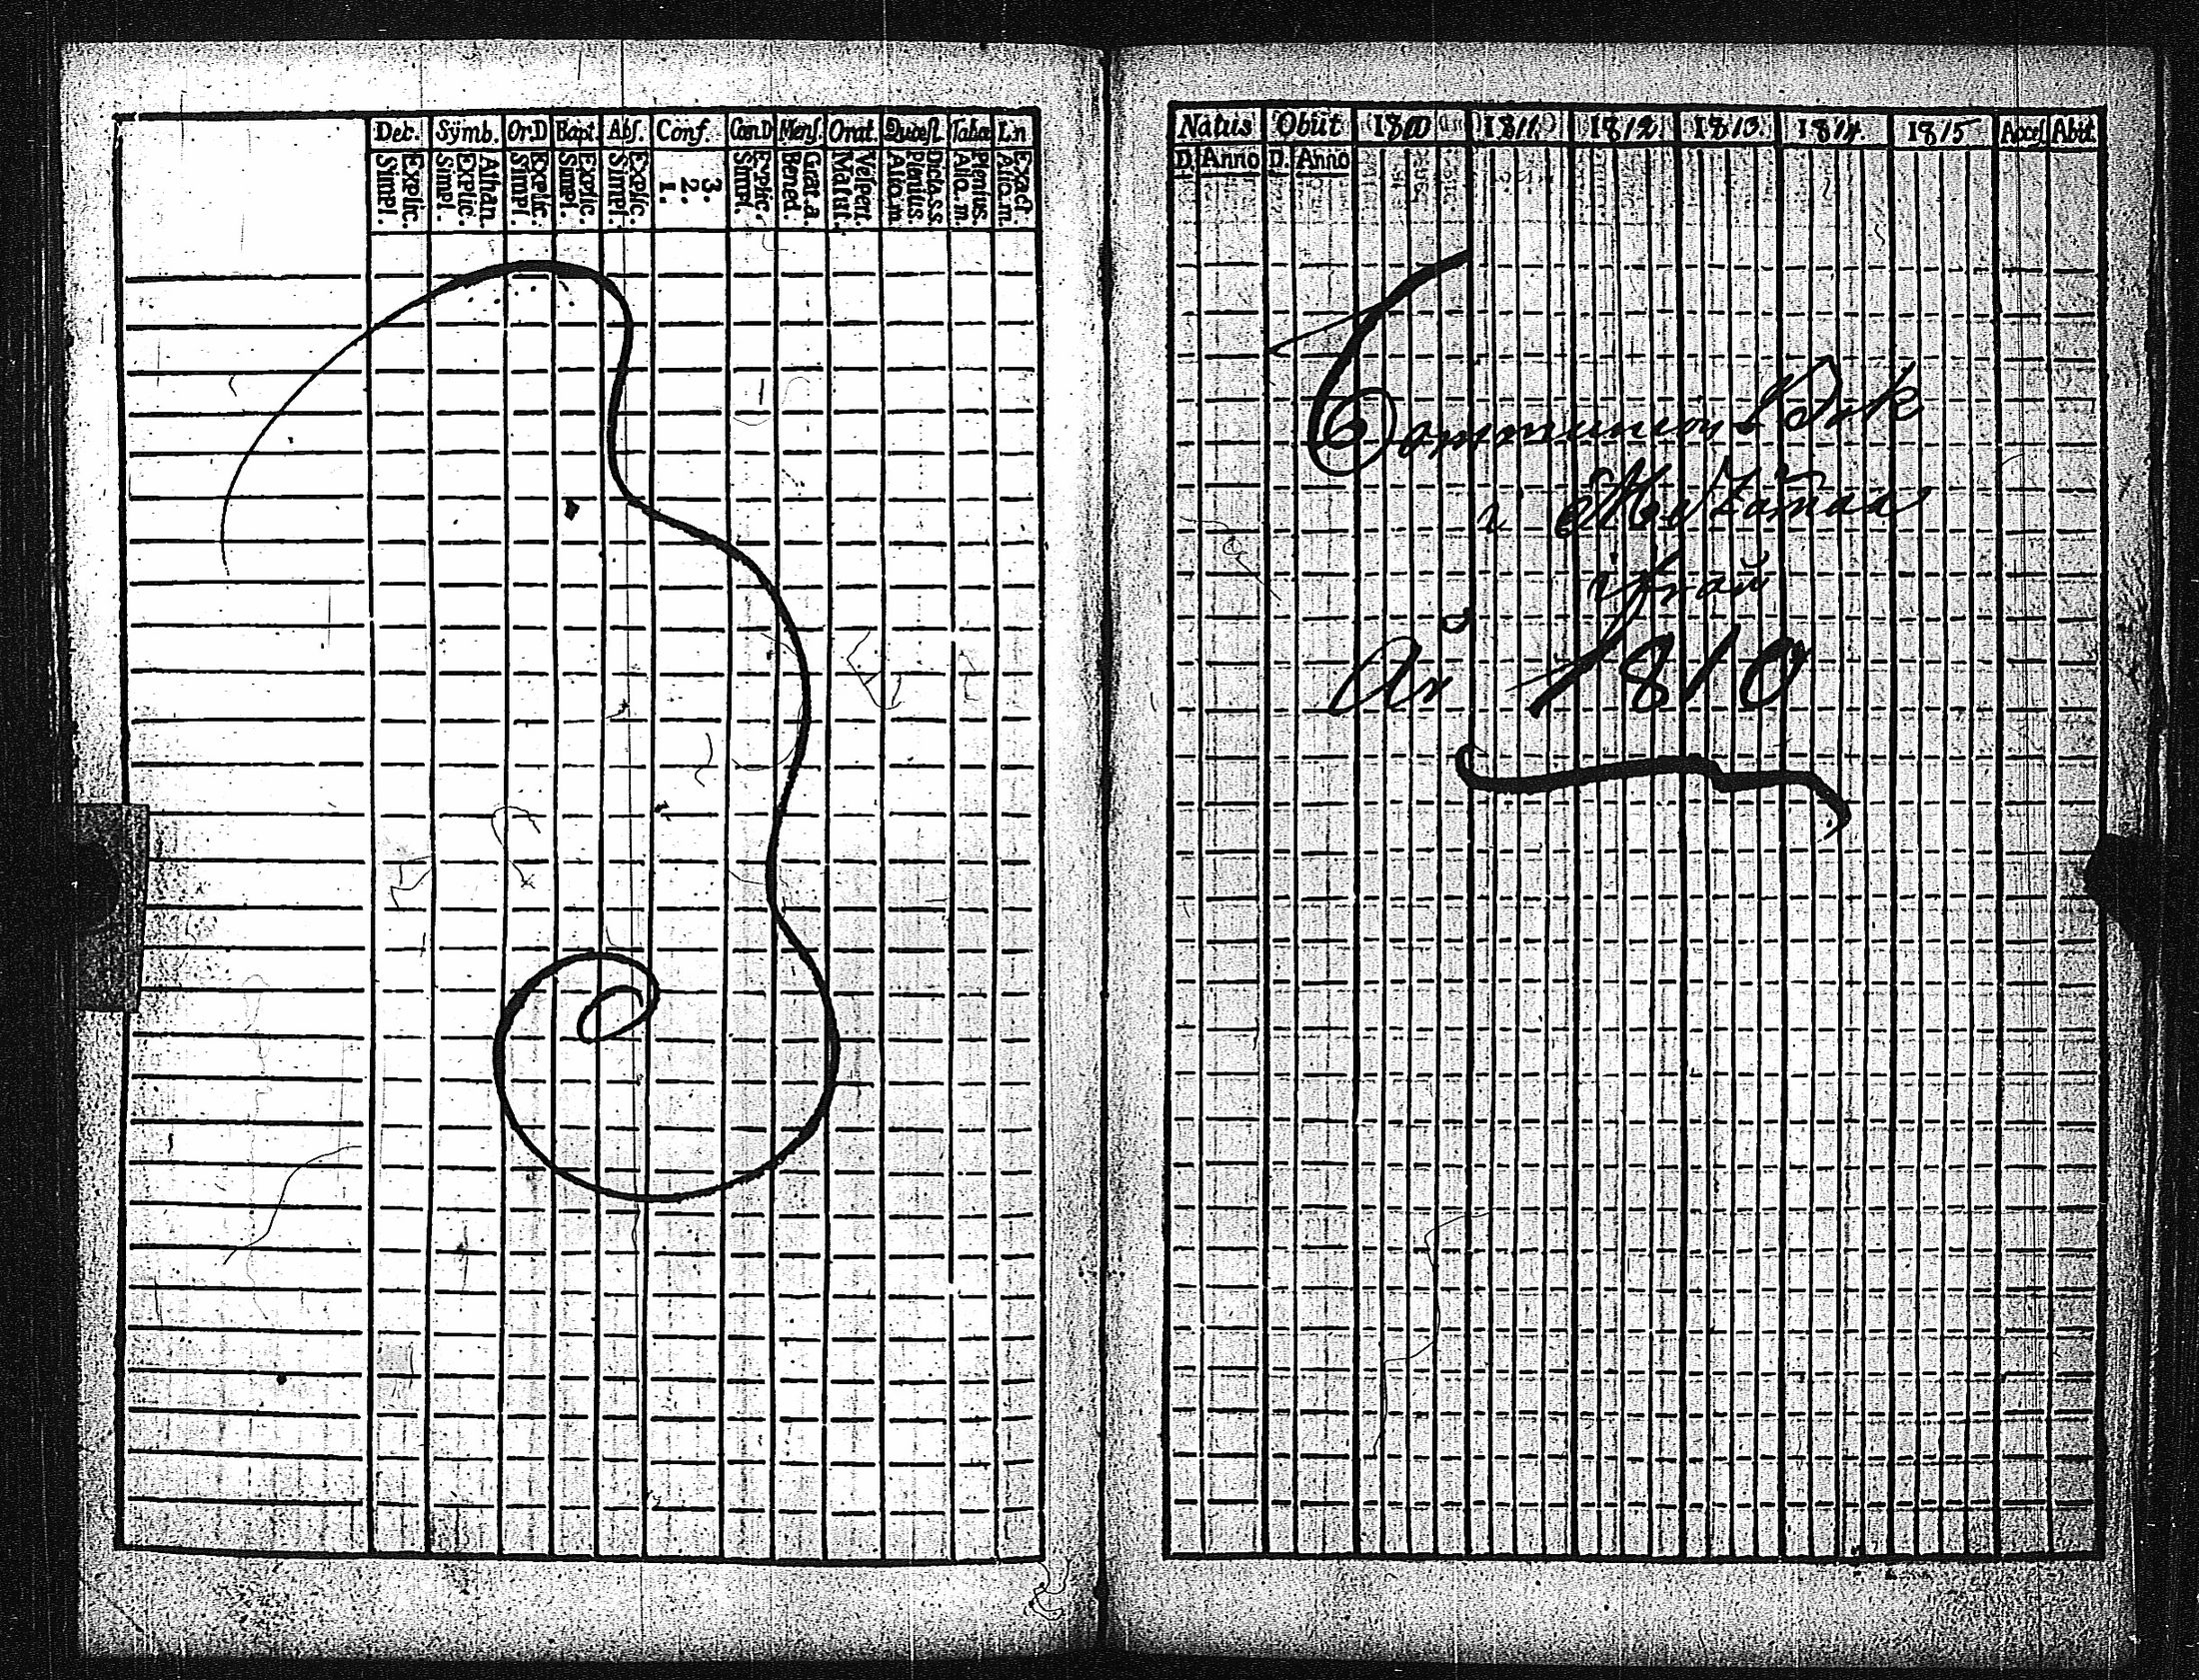 Dec. Symb. Or.D Bapt. Abs. Conf. Can.D Mens. Orat. Quæst. Tabæ
Explic. Simpl.
Athan. Explic. Simpl.
Explic. Simpl.
Explic. Simpl.
Explic. Simpl.
3. 2. 1.
Explic. Simpl.
Grat. a. Bened.
Vespert. Matut.
Dicta. s s. Plenius. Alio. m.
Plenius. Alio. m.
Exact. Alio. m.
Natus Obiit 1810 1811 1812 1813 1814. 1815 Acces Abit.
D. Anno D. Anno
Communion Bok
i
ifrån
År 1810